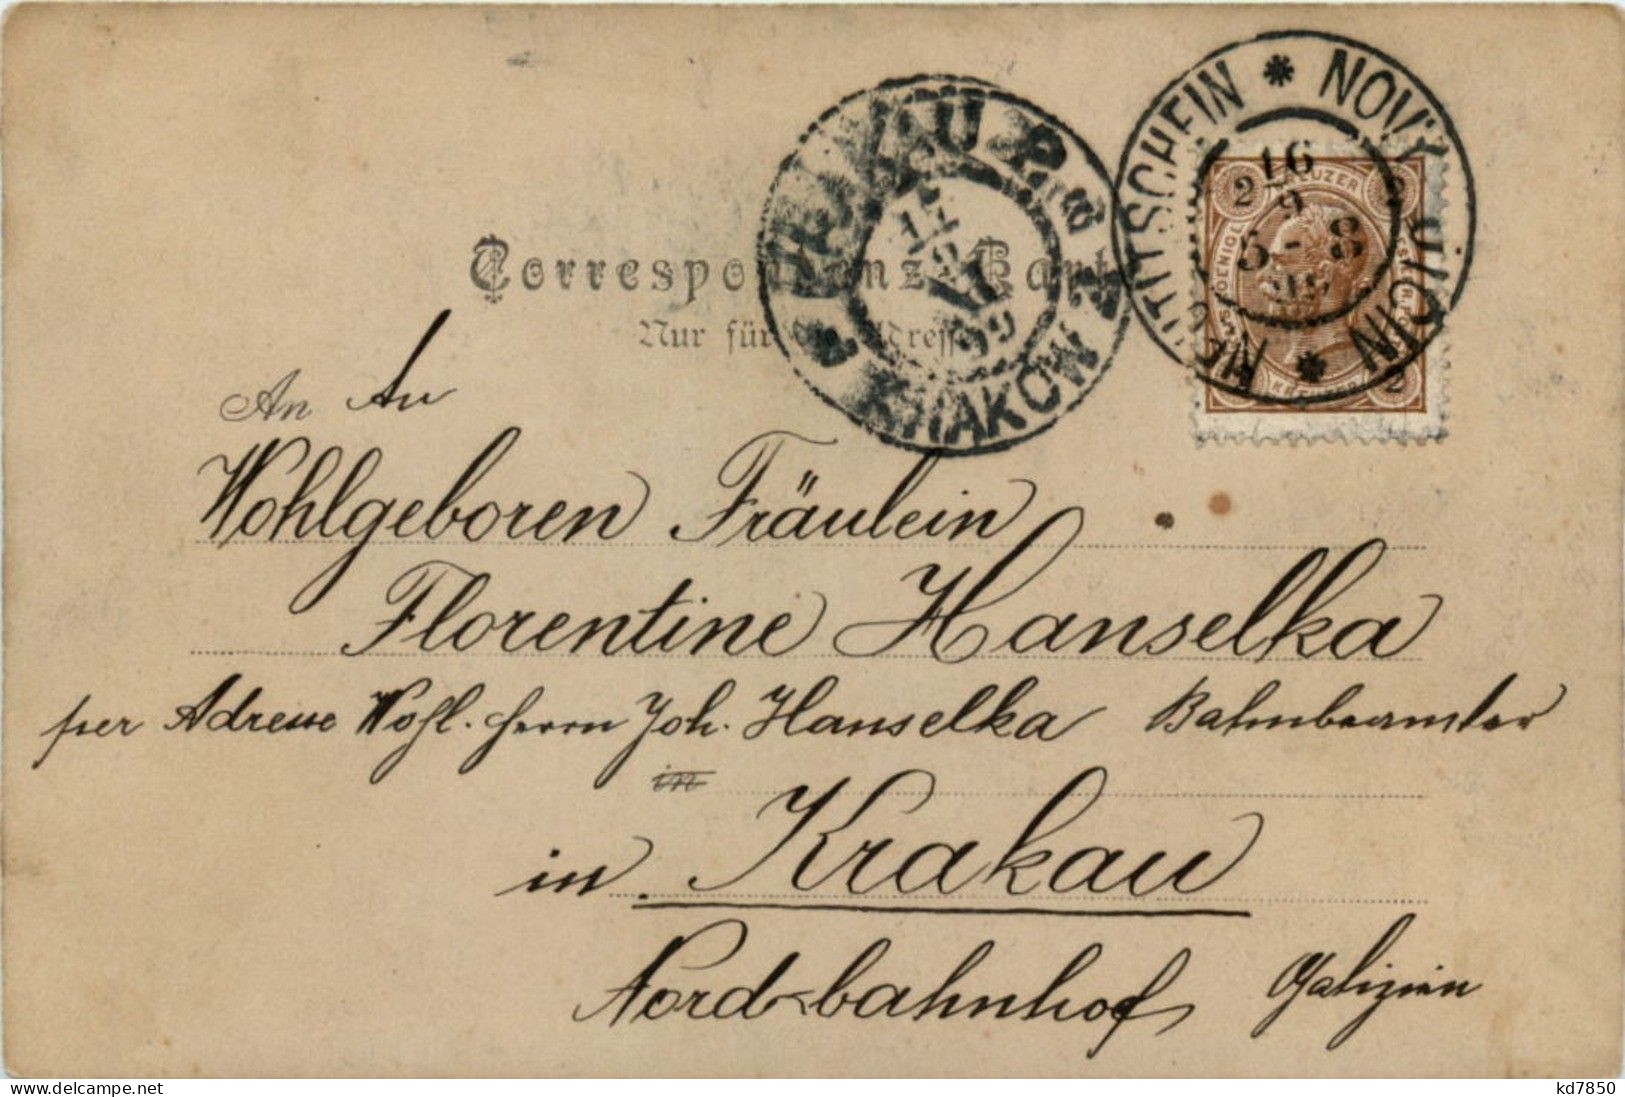 Correspondenz-Karte
Nur für die Adresse
KRAKAU
KRAKÓW
17
9
VI
99
NEUTITSCHEIN * NOVÝ JIČÍN *
16
9
5-8
KREUZER
2
2
2
An An
Wohlgeboren Fräulein
Florentine Hanselka
per Adresse Wohl. Herrn Joh. Hanselka Bahnbeamter
in
in Krakau
Nordbahnhof Galizien
www.delcampe.net
kd7850